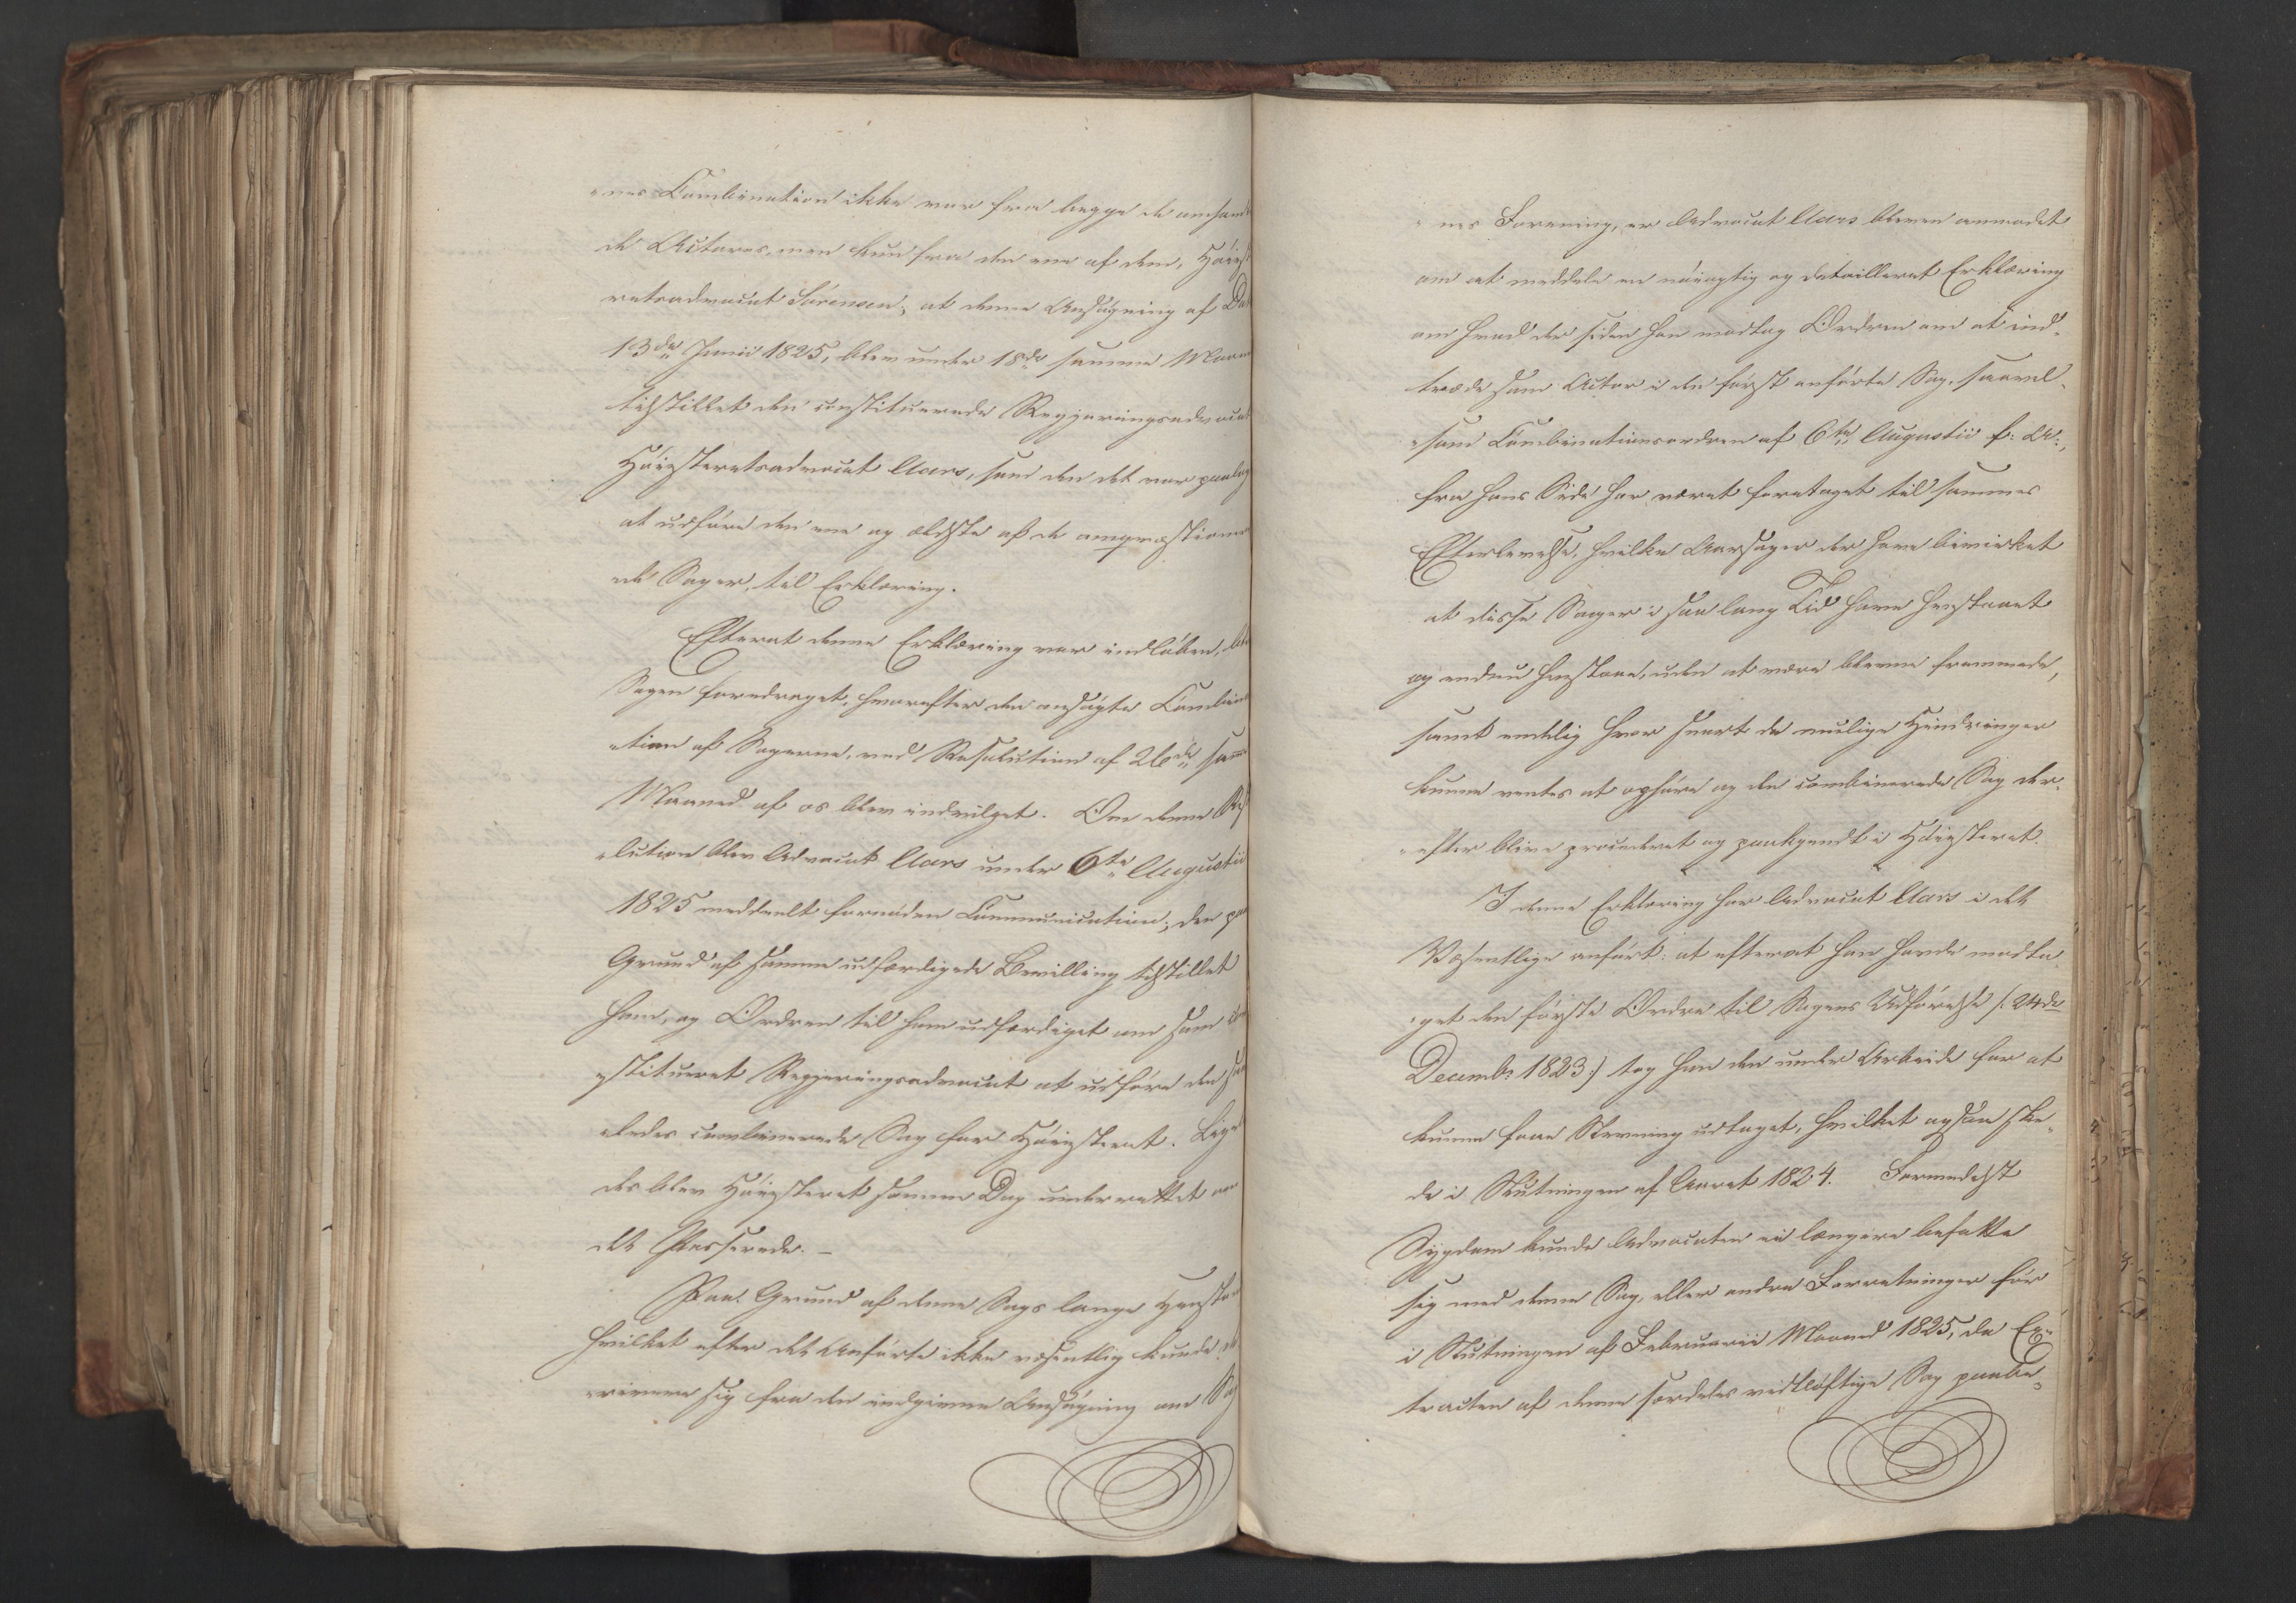 nes Combination ikke var fra begge de omhand
de Actores, men kun fra den ene af dem, Høiest
retsadvocat Sørensen, at denne Ansøgning af Dat
13de Junii 1825, blev under 18de samme Maan
tilstillet den constituerede Regjeringsadvocat
Høiesteretsadvocat Aars, som den det var paalag
at udføre den ene og ældste af de omqvæstioner
ede Sager, til Erklæring.
Efterat denne Erklæring var indløben, blev
Sagen foredraget, hvorefter den ansøgte Combina
tion af Sagerne, ved Resolution af 26de samme
Maaned af os blev indvilget. Om denne Re
solution blev Advocat Aars under 6te Augustii
1825 meddeelt fornøden Communication, den paa
Grund af samme udfærdigede Bevilling tilstillet
ham, og Ordren til ham udfærdiget om som con
stitueret Regjeringsadvocat at udføre den saa
ledes combinerede Sag for Høiesteret. Lige
des blev Høiesteret samme Dag underrettet om
det Passerede.
Paa Grund af denne Sags lange Henstaaen
hvilket efter det Anførte ikke væsentlig kunde
rivere sig fra den indgivne Ansøgning om Sag
nes Forening, er Advocat Aars bleven anmodet
om at meddele en nøiagtig og detailleret Erklæring
om hvad der siden han modtog Ordren om at ind-
træde som Actor i den først anførte Sag, saavel-
som Combinationsordren af 6te Augustii f: A:,
fra hans Side har været foretaget til sammes
Efterlevelse, hvilke Aarsager der have bevirket
at disse Sager i saa lang Tid have henstaaet
og endnu henstaae, uden at være blevne fremmede,
samt endelig hvor snart de mulige Hindringer
kunne ventes at ophøre og den combinerede Sag der-
efter blive procederet og paakjendt i Høiesteret.
I denne Erklæring har Advocat Aars i det
Væsentlige anført: at efterat han havde modta
get den første Ordre til Sagens Udførelse /: 24de
Decembr 1823 :/ tog han den under Arbeide for at
kunne faae Stevning udtaget, hvilket ogsaa ske-
de i Slutningen af Aaret 1824. Formedelst
Sygdom kunde Advocaten ei længere befatte
sig med denne Sag, eller andre Forretninger før
i Slutningen af Februarii Maaned 1825, da Ex-
tracten af denne særdeles vidtløftige Sag paabe-